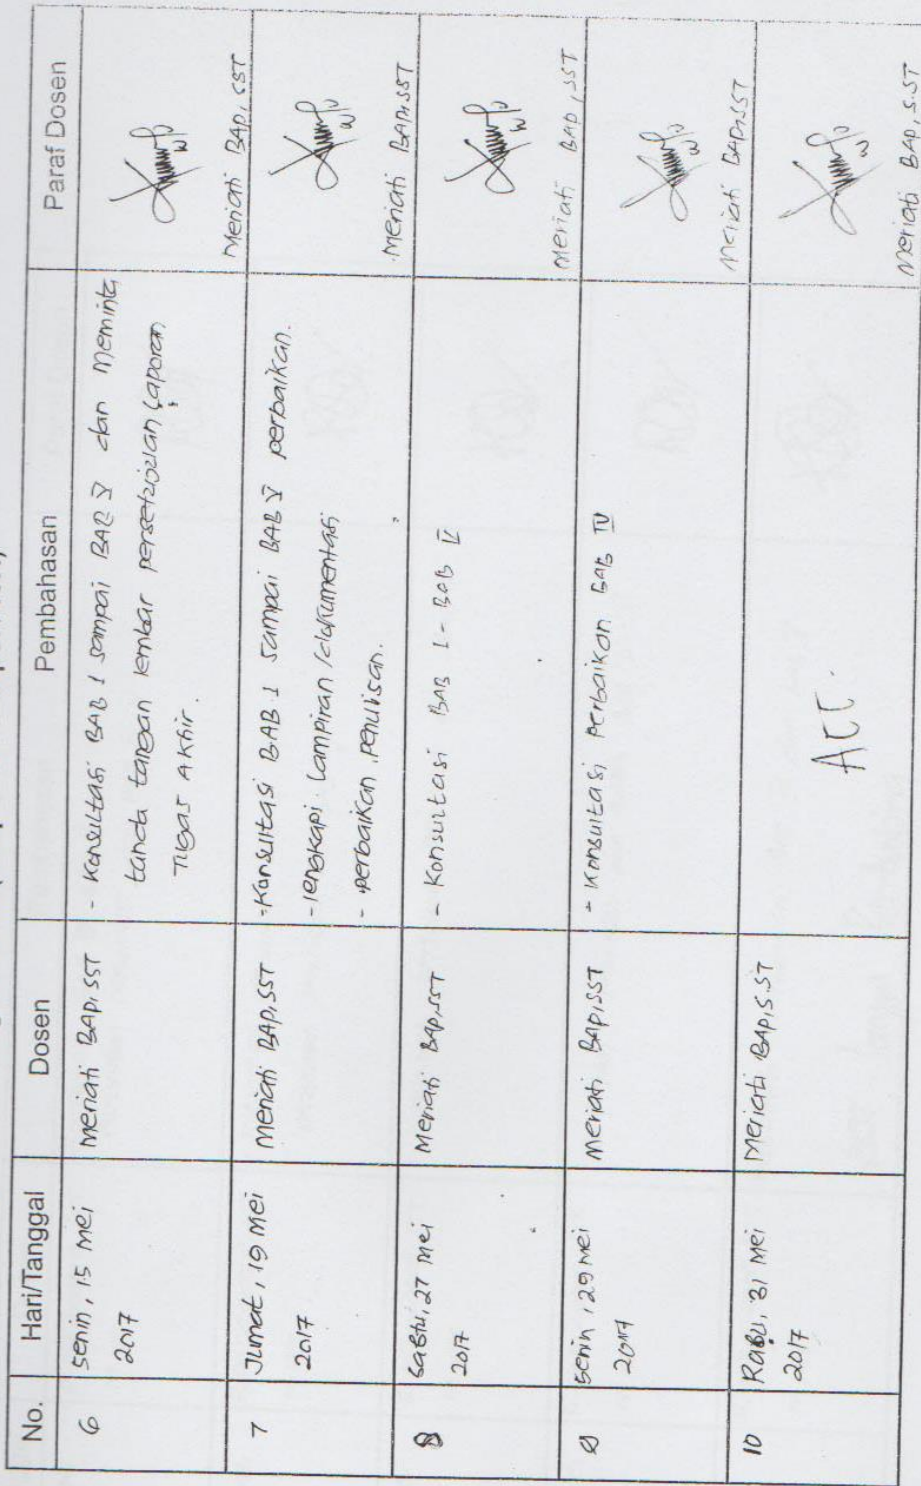 No. Hari/Tanggal Dosen Pembahasan Paraf Dosen
6 Senin, 15 Mei Meriati BAP, SST - Konsultasi BAB I sampai BAB V dan meminta
2017 tanda tangan lembar persetujuan Laporan
Tugas Akhir.
Meriati BAP, SST
7 Jumat, 19 Mei Meriati BAP, SST - Konsultasi BAB I sampai BAB V perbaikan.
2017 - lengkapi Lampiran / dokumentasi
- perbaikan penulisan.
Meriati BAP, SST
8 Sabtu, 27 Mei Meriati BAP, SST - Konsultasi BAB I - BAB V
2017
Meriati BAP, SST
9 Senin, 29 Mei Meriati BAP, SST - Konsultasi perbaikan BAB IV
2017
Meriati BAP, SST
10 Rabu, 31 Mei Meriati BAP, S.ST ACC.
2017
Meriati BAP, S.ST